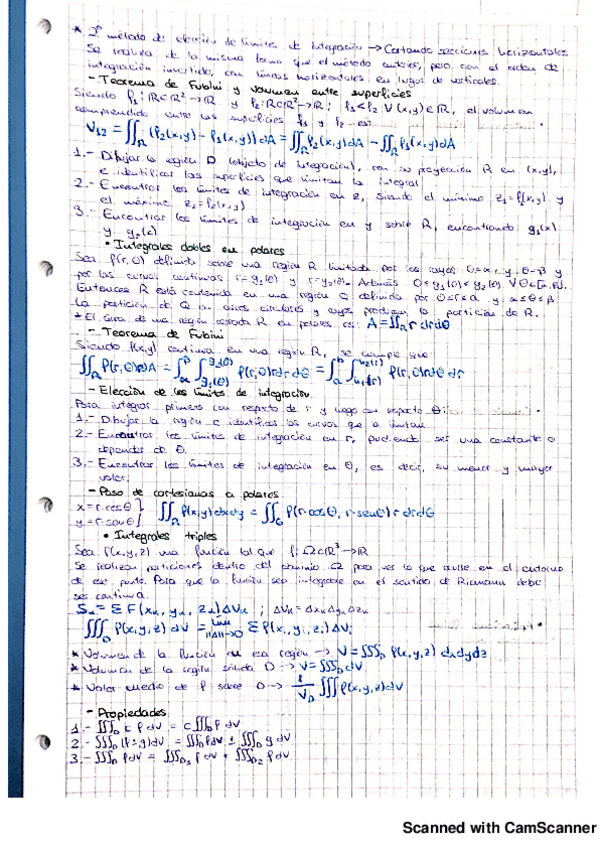 * 2º método de elección de límites de integración → Cortando secciones horizontales
Se realiza de la misma forma que el método anterior, pero con el orden de
integración invertido, con líneas horizontales en lugar de verticales.
- Teorema de Fubini y volumen entre superficies
Siendo f₁: R⊂R²→R y f₂: R⊂R²→R; f₁<f₂ ∀(x,y)∈R, el volumen
comprendido entre las superficies f₁ y f₂ es:
V₁₂ = ∬_R (f₂(x,y) - f₁(x,y)) dA = ∬_R f₂(x,y) dA - ∬_R f₁(x,y) dA
1.- Dibujar la región D (objeto de integración), con su proyección R en (x,y),
e identificar las superficies que limitan la integral
2.- Encontrar los límites de integración en z, siendo el mínimo z₁=f₁(x,y) y
el máximo z₂=f₂(x,y)
3.- Encontrar los límites de integración en y sobre R, encontrando g₁(x)
y g₂(x)
• Integrales dobles en polares
Sea f(r,θ) definida sobre una región R limitada por los rayos θ=α y θ=β y
por las curvas continuas r=g₁(θ) y r=g₂(θ). Además 0≤g₁(θ)≤g₂(θ), ∀θ∈[α,β].
Entonces R está contenida en una región Q definida por 0≤r≤a y α≤θ≤β
La partición de Q en arcos circulares y rayos produce la partición de R.
* El área de una región cerrada R en polares es: A=∬_R r dr dθ
- Teorema de Fubini
Siendo f(x,y) continua en una región R, se cumple que:
∬_R f(r,θ) dA = ∫_α^β ∫_{g₁(θ)}^{g₂(θ)} f(r,θ) r dr dθ = ∫_a^b ∫_{u₁(r)}^{u₂(r)} f(r,θ) r dθ dr
- Elección de los límites de integración
Para integrar primero con respecto de r y luego con respecto θ:
1.- Dibujar la región e identificar las curvas que la limitan
2.- Encontrar los límites de integración en r, pudiendo ser una constante o
depender de θ.
3.- Encontrar los límites de integración en θ, es decir, su menor y mayor
valor.
- Paso de cartesianas a polares
x=r·cosθ }
y=r·senθ } ∬_R f(x,y) dx dy = ∬_G f(r·cosθ, r·senθ) r dr dθ
• Integrales triples
Sea f(x,y,z) una función tal que f: Ω⊂R³→R
Se realizan particiones dentro del dominio Ω para ver lo que ocurre en el entorno
de ese punto. Para que la función sea integrable en el sentido de Riemann debe
ser continua.
Sₙ = Σ F(xₖ, yₖ, zₖ) ΔVₖ ; ΔVₖ = Δxₖ Δyₖ Δzₖ
∭_D f(x,y,z) dV = lim_{||Δ||→0} Σ f(xᵢ, yᵢ, zᵢ) ΔVᵢ
* Volumen de la función en esa región → V=∭_D f(x,y,z) dx dy dz
* Volumen de la región sólida D → V=∭_D dV
* Valor medio de f sobre D → 1/V_D ∭ f(x,y,z) dV
- Propiedades
1.- ∭_D c f dV = c ∭_D f dV
2.- ∭_D (f ± g) dV = ∭_D f dV ± ∭_D g dV
3.- ∭_D f dV = ∭_D₁ f dV + ∭_D₂ f dV
Scanned with CamScanner